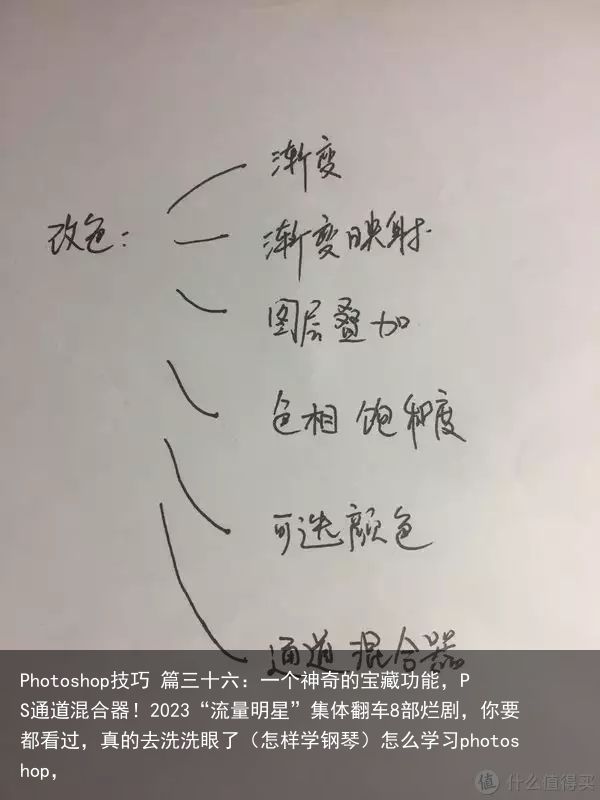 渐变
改色：
渐变映射
图层叠加
色相 饱和度
可选颜色
通道混合器
Photoshop技巧 篇三十六：一个神奇的宝藏功能，P
S通道混合器！2023“流量明星”集体翻车8部烂剧，你要
都看过，真的去洗洗眼了（怎样学钢琴）怎么学习photos
hop，
值 什么值得买